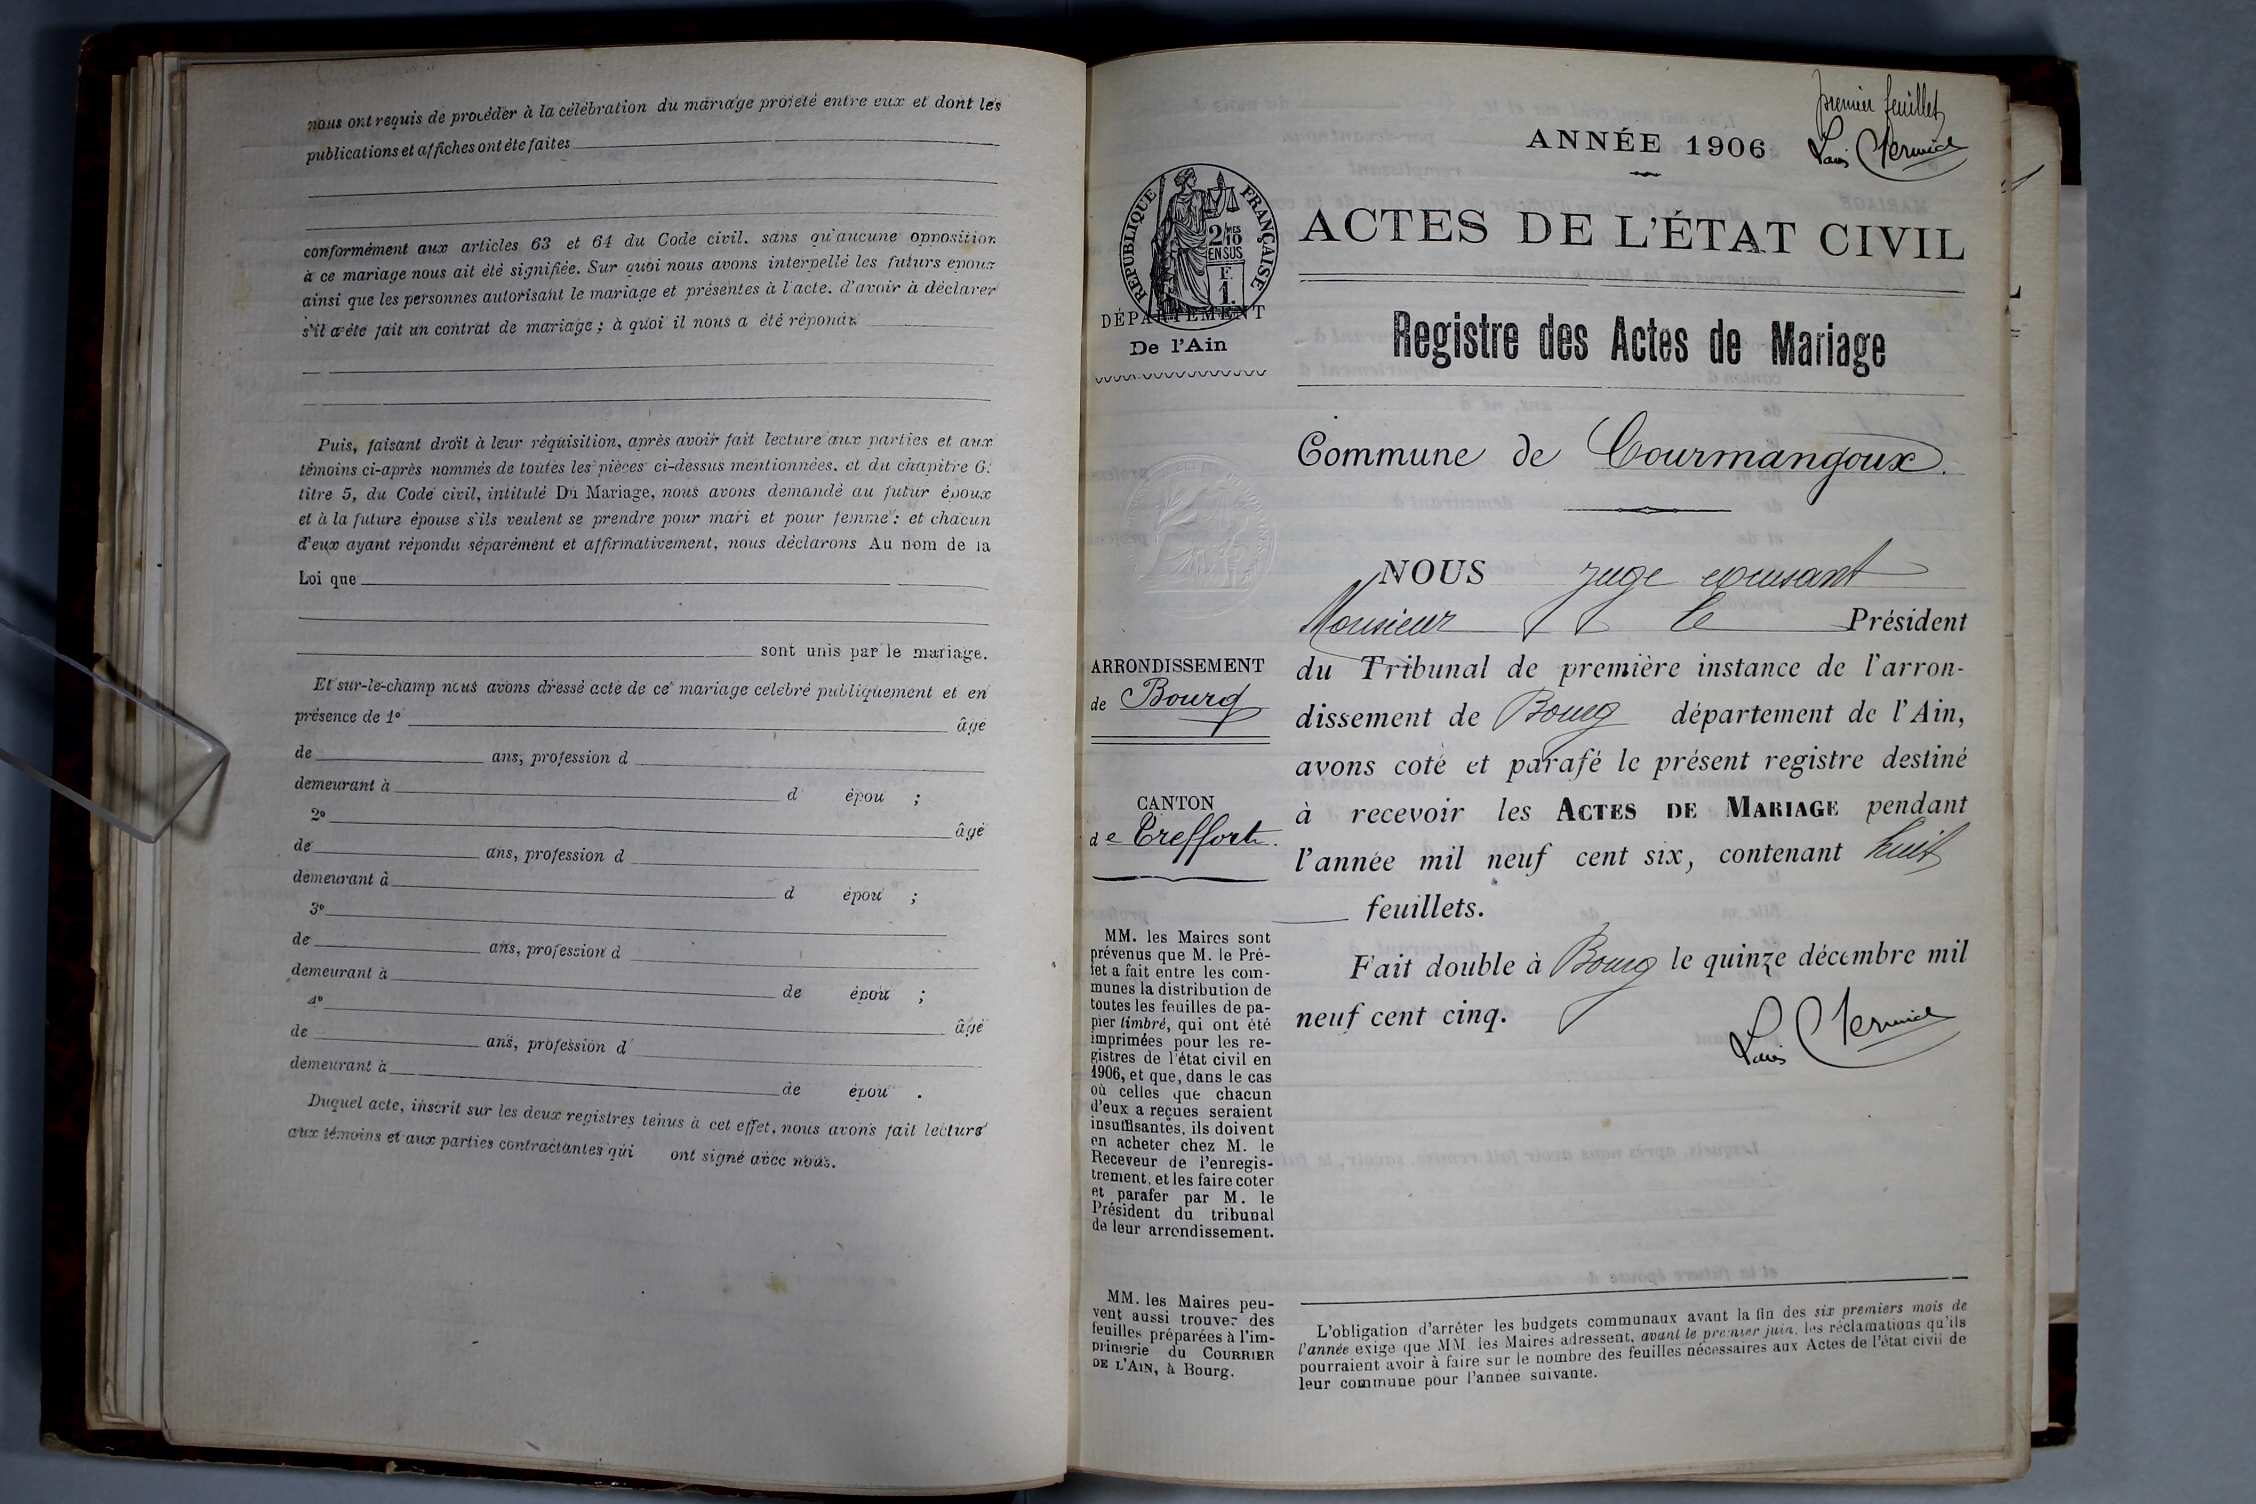 nous ont requis de procéder à la célébration du mariage projeté entre eux et dont les
publications et affiches ont été faites
conformément aux articles 63 et 64 du Code civil, sans qu'aucune opposition
à ce mariage nous ait été signifiée. Sur quoi nous avons interpellé les futurs époux
ainsi que les personnes autorisant le mariage et présentes à l'acte, d'avoir à déclarer
s'il a été fait un contrat de mariage ; à quoi il nous a été répondu
Puis, faisant droit à leur réquisition, après avoir fait lecture aux parties et aux
témoins ci-après nommés de toutes les pièces ci-dessus mentionnées, et du chapitre 6,
titre 5, du Code civil, intitulé Du Mariage, nous avons demandé au futur époux
et à la future épouse s'ils veulent se prendre pour mari et pour femme ; et chacun
d'eux ayant répondu séparément et affirmativement, nous déclarons Au nom de la
Loi que
sont unis par le mariage.
Et sur-le-champ nous avons dressé acte de ce mariage célébré publiquement et en
présence de 1° âgé
de ans, profession d
demeurant à d épou ;
2° âgé
de ans, profession d
demeurant à d épou ;
3°
de ans, profession d
demeurant à de épou ;
4° âgé
de ans, profession d
demeurant à de épou .
Duquel acte, inscrit sur les deux registres tenus à cet effet, nous avons fait lecture
aux témoins et aux parties contractantes qui ont signé avec nous.
premier feuillet
Louis
ANNÉE 1906
RÉPUBLIQUE FRANÇAISE
2/10 EN SUS
F. 1.
DÉPARTEMENT
De l'Ain
ACTES DE L'ÉTAT CIVIL
Registre des Actes de Mariage
Commune de Courmangoux.
NOUS juge
Monsieur le Président
du Tribunal de première instance de l'arron-
dissement de Bourg département de l'Ain,
avons coté et parafé le présent registre destiné
à recevoir les ACTES DE MARIAGE pendant
l'année mil neuf cent six, contenant huit
feuillets.
Fait double à Bourg le quinze décembre mil
neuf cent cinq.
Louis
ARRONDISSEMENT
de Bourg
CANTON
de Treffort.
MM. les Maires sont
prévenus que M. le Pré-
fet a fait entre les com-
munes la distribution de
toutes les feuilles de pa-
pier timbré, qui ont été
imprimées pour les re-
gistres de l'état civil en
1906, et que, dans le cas
où celles que chacun
d'eux a reçues seraient
insuffisantes, ils doivent
en acheter chez M. le
Receveur de l'enregis-
trement, et les faire coter
et parafer par M. le
Président du tribunal
de leur arrondissement.
MM. les Maires peu-
vent aussi trouver des
feuilles préparées à l'im-
primerie du COURRIER
DE L'AIN, à Bourg.
L'obligation d'arrêter les budgets communaux avant la fin des six premiers mois de
l'année exige que MM. les Maires adressent, avant le premier juin, les réclamations qu'ils
pourraient avoir à faire sur le nombre des feuilles nécessaires aux Actes de l'état civil de
leur commune pour l'année suivante.